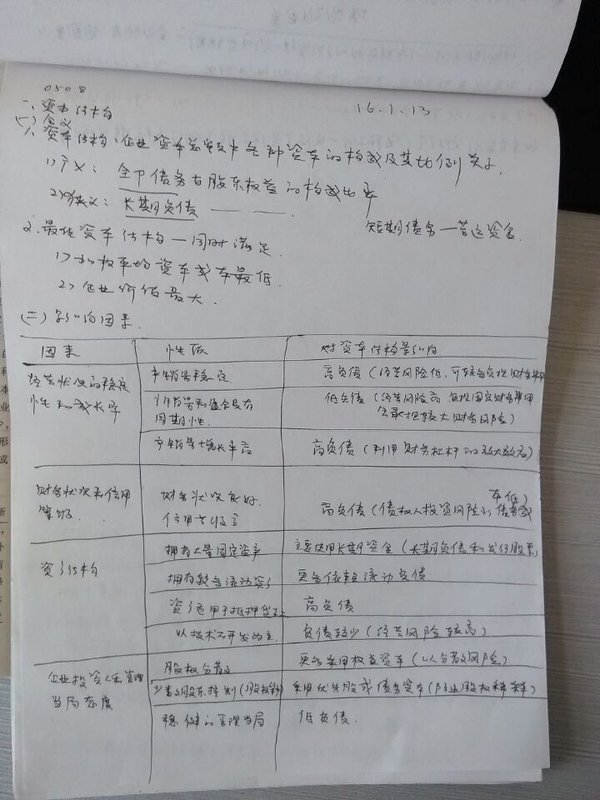 0508
16.1.13
一、资本结构
(一) 含义
1、资本结构:企业资本总额中各种资本的构成及其比例关系.
1) 广义: 全部债务与股东权益的构成比率
2) 狭义: 长期负债 ———.
短期债务—营运资金.
2、最佳资本结构—同时满足.
1) 加权平均资本成本最低.
2) 企业价值最大.
(二) 影响因素.
因素 性质 对资本结构影响
经营状况的稳定性和成长率 产销量稳定 高负债 (经营风险低,可较多负担财务费用
产销量和盈余具有周期性. 低负债 (经营风险高 负担固定财务费用会承担较大财务风险)
产销量增长率高 高负债 (利用财务杠杆的放大效应)
财务状况和信用等级 财务状况良好. 信用等级高 高负债 (债权人投资风险小,债务成本低)
资产结构 拥有大量固定资产 主要使用长期资金 (长期负债和发行股票)
拥有较多流动资产 更多依赖流动负债
资产适用于抵押贷款 高负债
以技术研发为主 负债较少 (经营风险较高)
企业投资人和管理当局态度 股权分散 更多采用权益资本 (以分散风险)
少数股东控制 (股权稀释) 采用优先股或债务资本 (防止股权稀释)
稳健的管理当局 低负债.